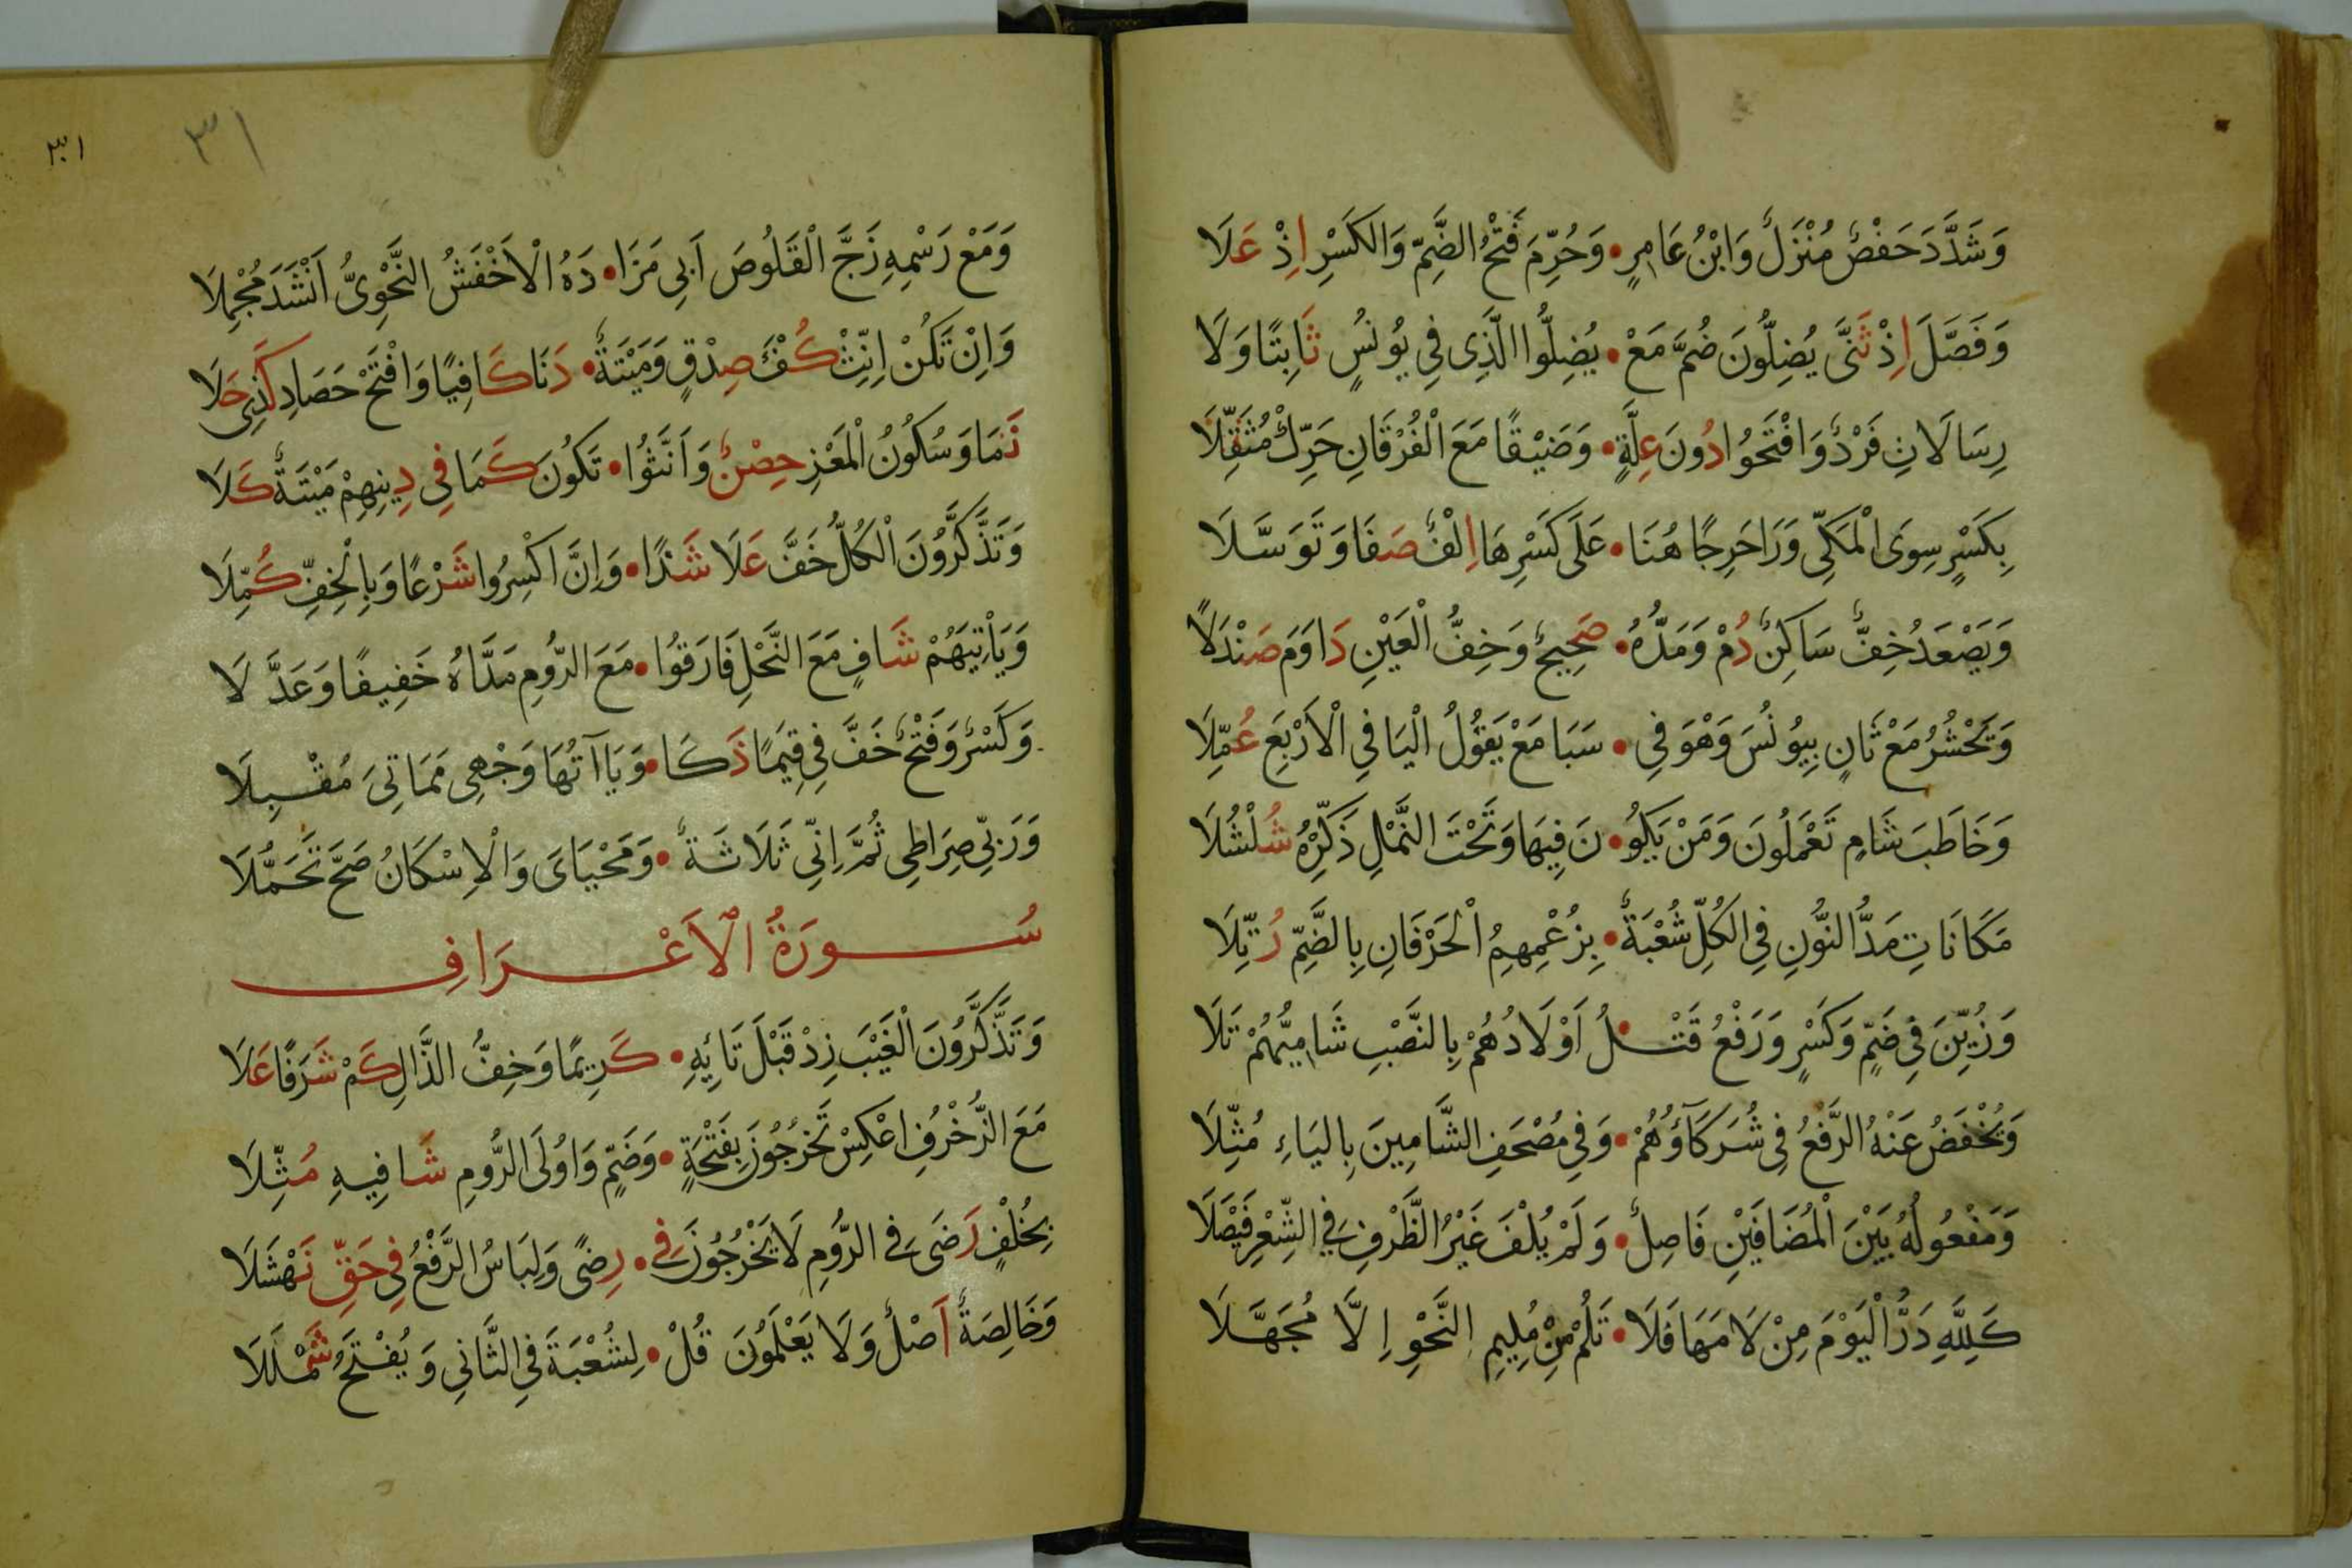 وَشَدَّدَ حَفْصٌ مُنْزَلٌ وَابْنُ عَامِرٍ • وَحُرِّمَ فَتْحُ الضَّمِّ وَالْكَسْرِ اِذْ عَلَا
وَفَصَّلَ اِذْ ثَنَّى يُضِلُّونَ ضُمَّ مَعْ • يُضِلُّوا الَّذِى فِى يُونُسٍ ثَابِتًا وَلَا
رِسَالَاتِ فَرْدٌ وَافْتَحُوا دُونَ عِلَّةٍ • وَضَيْقًا مَعَ الْفُرْقَانِ حَرِّكْ مُثَقِّلَا
بِكَسْرٍ سِوَى الْمَكِّى وَرَا حَرِجًا هُنَا • عَلَى كَسْرِهَا اِلْفٌ صَفَا وَتَوَسَّلَا
وَيَصْعَدُ خِفٌّ سَاكِنٌ دُمْ وَمَدُّهُ • صَحِيحٌ وَخِفُّ الْعَيْنِ دَاوَمَ صَنْدَلًا
وَتَحْشُرُ مَعْ ثَانٍ بِيُونُسَ وَهْوَ فِى • سَبَا مَعْ يَقُولُ الْيَا فِى الْاَرْبَعِ عُمِّلَا
وَخَاطَبَ شَامٍ تَعْمَلُونَ وَمَنْ يَكُو • نَ فِيهَا وَتَحْتَ النَّمْلِ ذَكِّرْهُ شُلْشُلَا
مَكَانَاتِ مَدُّ النُّونِ فِى الْكُلِّ شُعْبَةٌ • بِزُعْمِهِمُ الْحَرْفَانِ بِالضَّمِّ رُتِّلَا
وَزُيِّنَ فِى ضَمٍّ وَكَسْرٍ وَرَفْعُ قَتْـ • ـلُ اَوْلَادُهُمْ بِالنَّصْبِ شَامِيُّهُمْ تَلَا
وَيُخْفَضُ عَنْهُ الرَّفْعُ فِى شُرَكَآؤُهُمْ • وَفِى مُصْحَفِ الشَّامِينَ بِالْيَاءِ مُثِّلَا
وَمَفْعُولُهُ بَيْنَ الْمُضَافَيْنِ فَاصِلٌ • وَلَمْ يُلْفَ غَيْرُ الظَّرْفِ فِى الشِّعْرِ فَيْصَلَا
كَلِلَّهِ دَرُّ الْيَوْمَ مِنْ لَامَهَا فَلَا • تَلُمْ مِنْ مُلِيمِ النَّحْوِ اِلَّا مُجَهَّلَا
٣١
٣١
وَمَعْ رَسْمِهِ زَجَّ الْقَلُوصَ اَبِى مَزَا • دَهُ الْاَخْفَشُ النَّحْوِىُّ اَنْشَدَ مُجْمِلَا
وَاِنْ تَكُنْ اَنِّثْ كُفْؤَ صِدْقٍ وَمَيْتَةٌ • دَنَا كَافِيًا وَافْتَحْ حَصَادِ كَذِى حَلَا
نَمَا وَسُكُونُ الْمَعْزِ حِصْنٌ وَاَنَّثُوا • تَكُونَ كَمَا فِى دِينِهِمْ مَيْتَةٌ كَلَا
وَتَذَّكَّرُونَ الْكُلُّ خَفَّ عَلَا شَذًا • وَاِنَّ اكْسِرُوا شَرْعًا وَبِالْخِفِّ كُمِّلَا
وَيَأْتِيَهُمْ شَافٍ مَعَ النَّحْلِ فَارَقُوا • مَعَ الرُّومِ مَدَّاهُ خَفِيفًا وَعَدَّلَا
وَكَسْرٌ وَفَتْحٌ خَفَّ فِى قِيَمًا ذَكَا • وَيَاآتُهَا وَجْهِى مَمَاتِىَ مُقْبِلَا
وَرَبِّى صِرَاطِى ثُمَّ اِنِّى ثَلَاثَةٌ • وَمَحْيَاىَ وَالْاِسْكَانُ صَحَّ تَحَمُّلَا
سُورَةُ الْاَعْرَافِ
وَتَذَّكَّرُونَ الْغَيْبَ زِدْ قَبْلَ تَائِهِ • كَرِيمًا وَخِفُّ الذَّالِ كَمْ شَرَفًا عَلَا
مَعَ الزُّخْرُفِ اعْكِسْ تَخْرُجُونَ بِفَتْحَةٍ • وَضَمٍّ وَاُولَى الرُّومِ شَافِيهِ مُثِّلَا
بِخُلْفٍ رَضَى فِى الرُّومِ لَا يَخْرُجُونَ فِى • رِضًى وَلِبَاسُ الرَّفْعُ فِى حَقِّ نَهْشَلَا
وَخَالِصَةٌ اَصْلٌ وَلَا يَعْلَمُونَ قُلْ • لِشُعْبَةَ فِى الثَّانِى وَيُفْتَحُ شَمْلَلَا